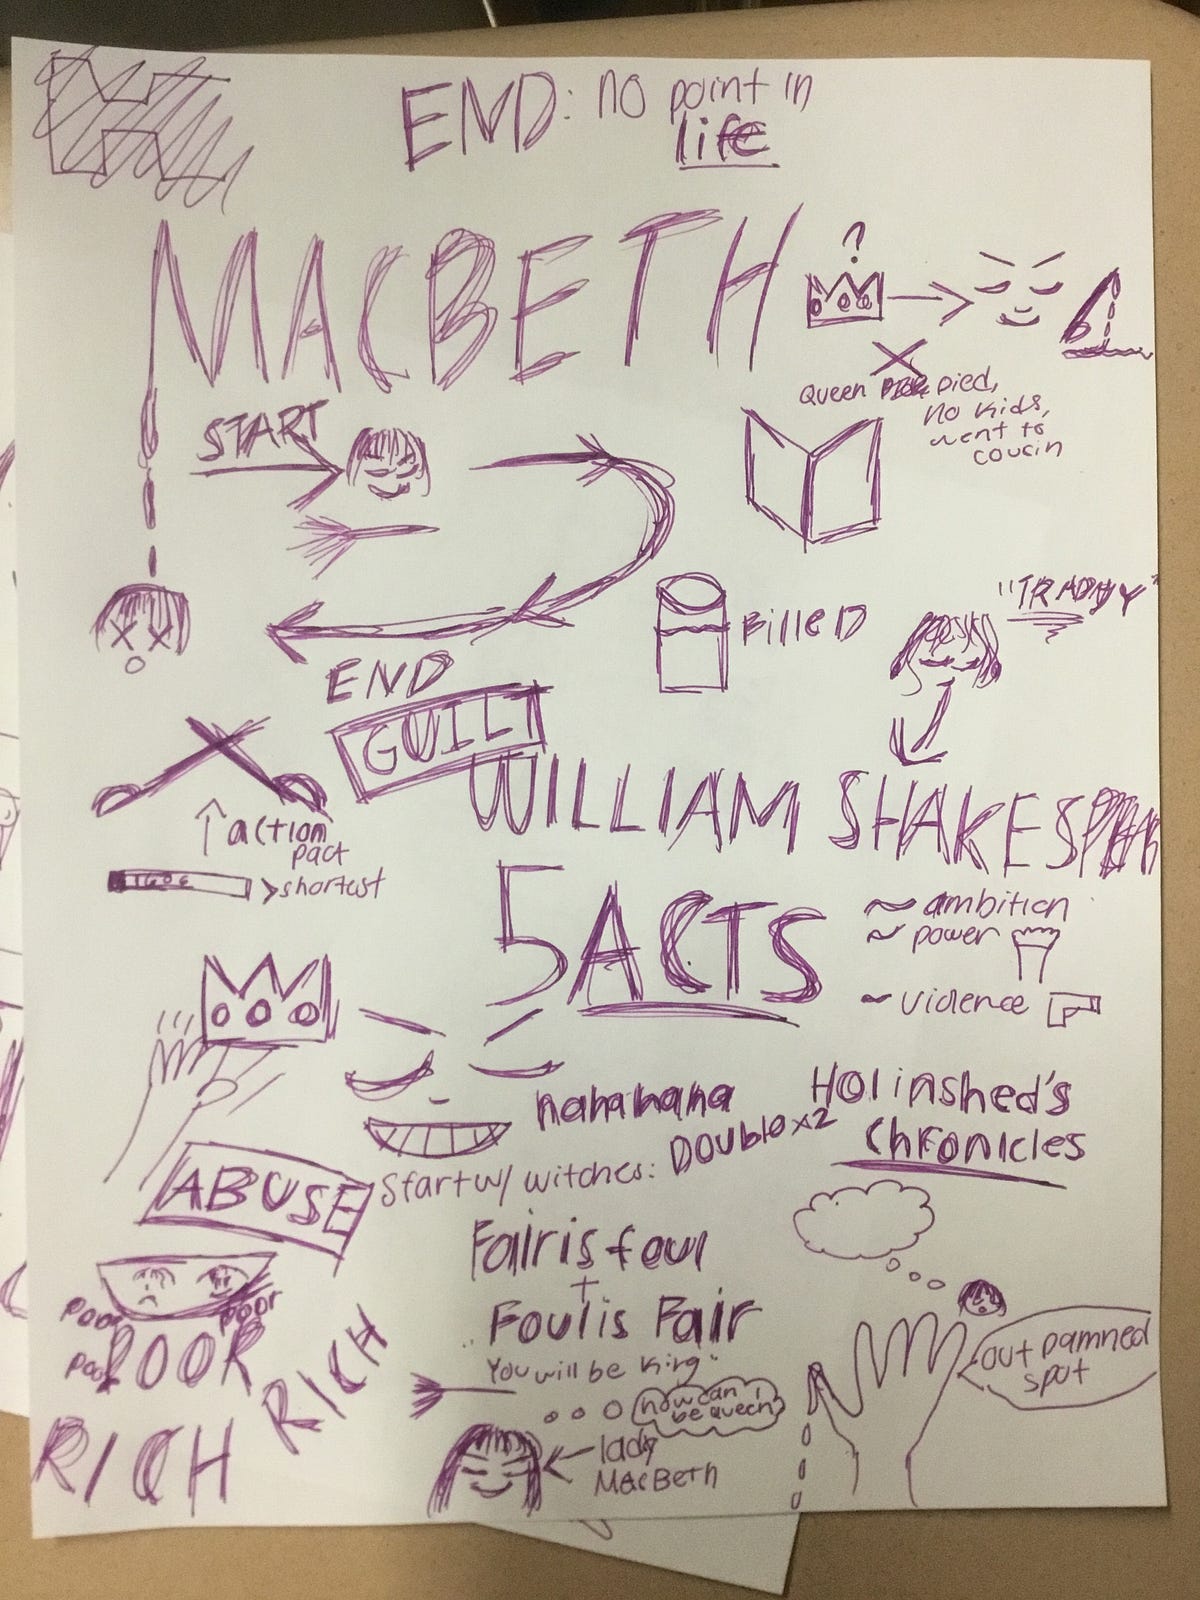 END: no point in
life
MACBETH
?
Queen Died,
no kids,
went to
cousin
START
"TRADGY"
Billed
END
GUILT
WILLIAM SHAKESPEAR
action
pact
1606
>shortest
5 ACTS
~ ambition
~ power
~ violence
hahahaha
Holinshed's
Chronicles
Start w/ witches: Double x2
ABUSE
Fair is foul
+
Foul is Fair
poor
poor
poor
POOR
RICH
RICH
"You will be king"
now can I
be queen
lady
MacBeth
out damned
spot